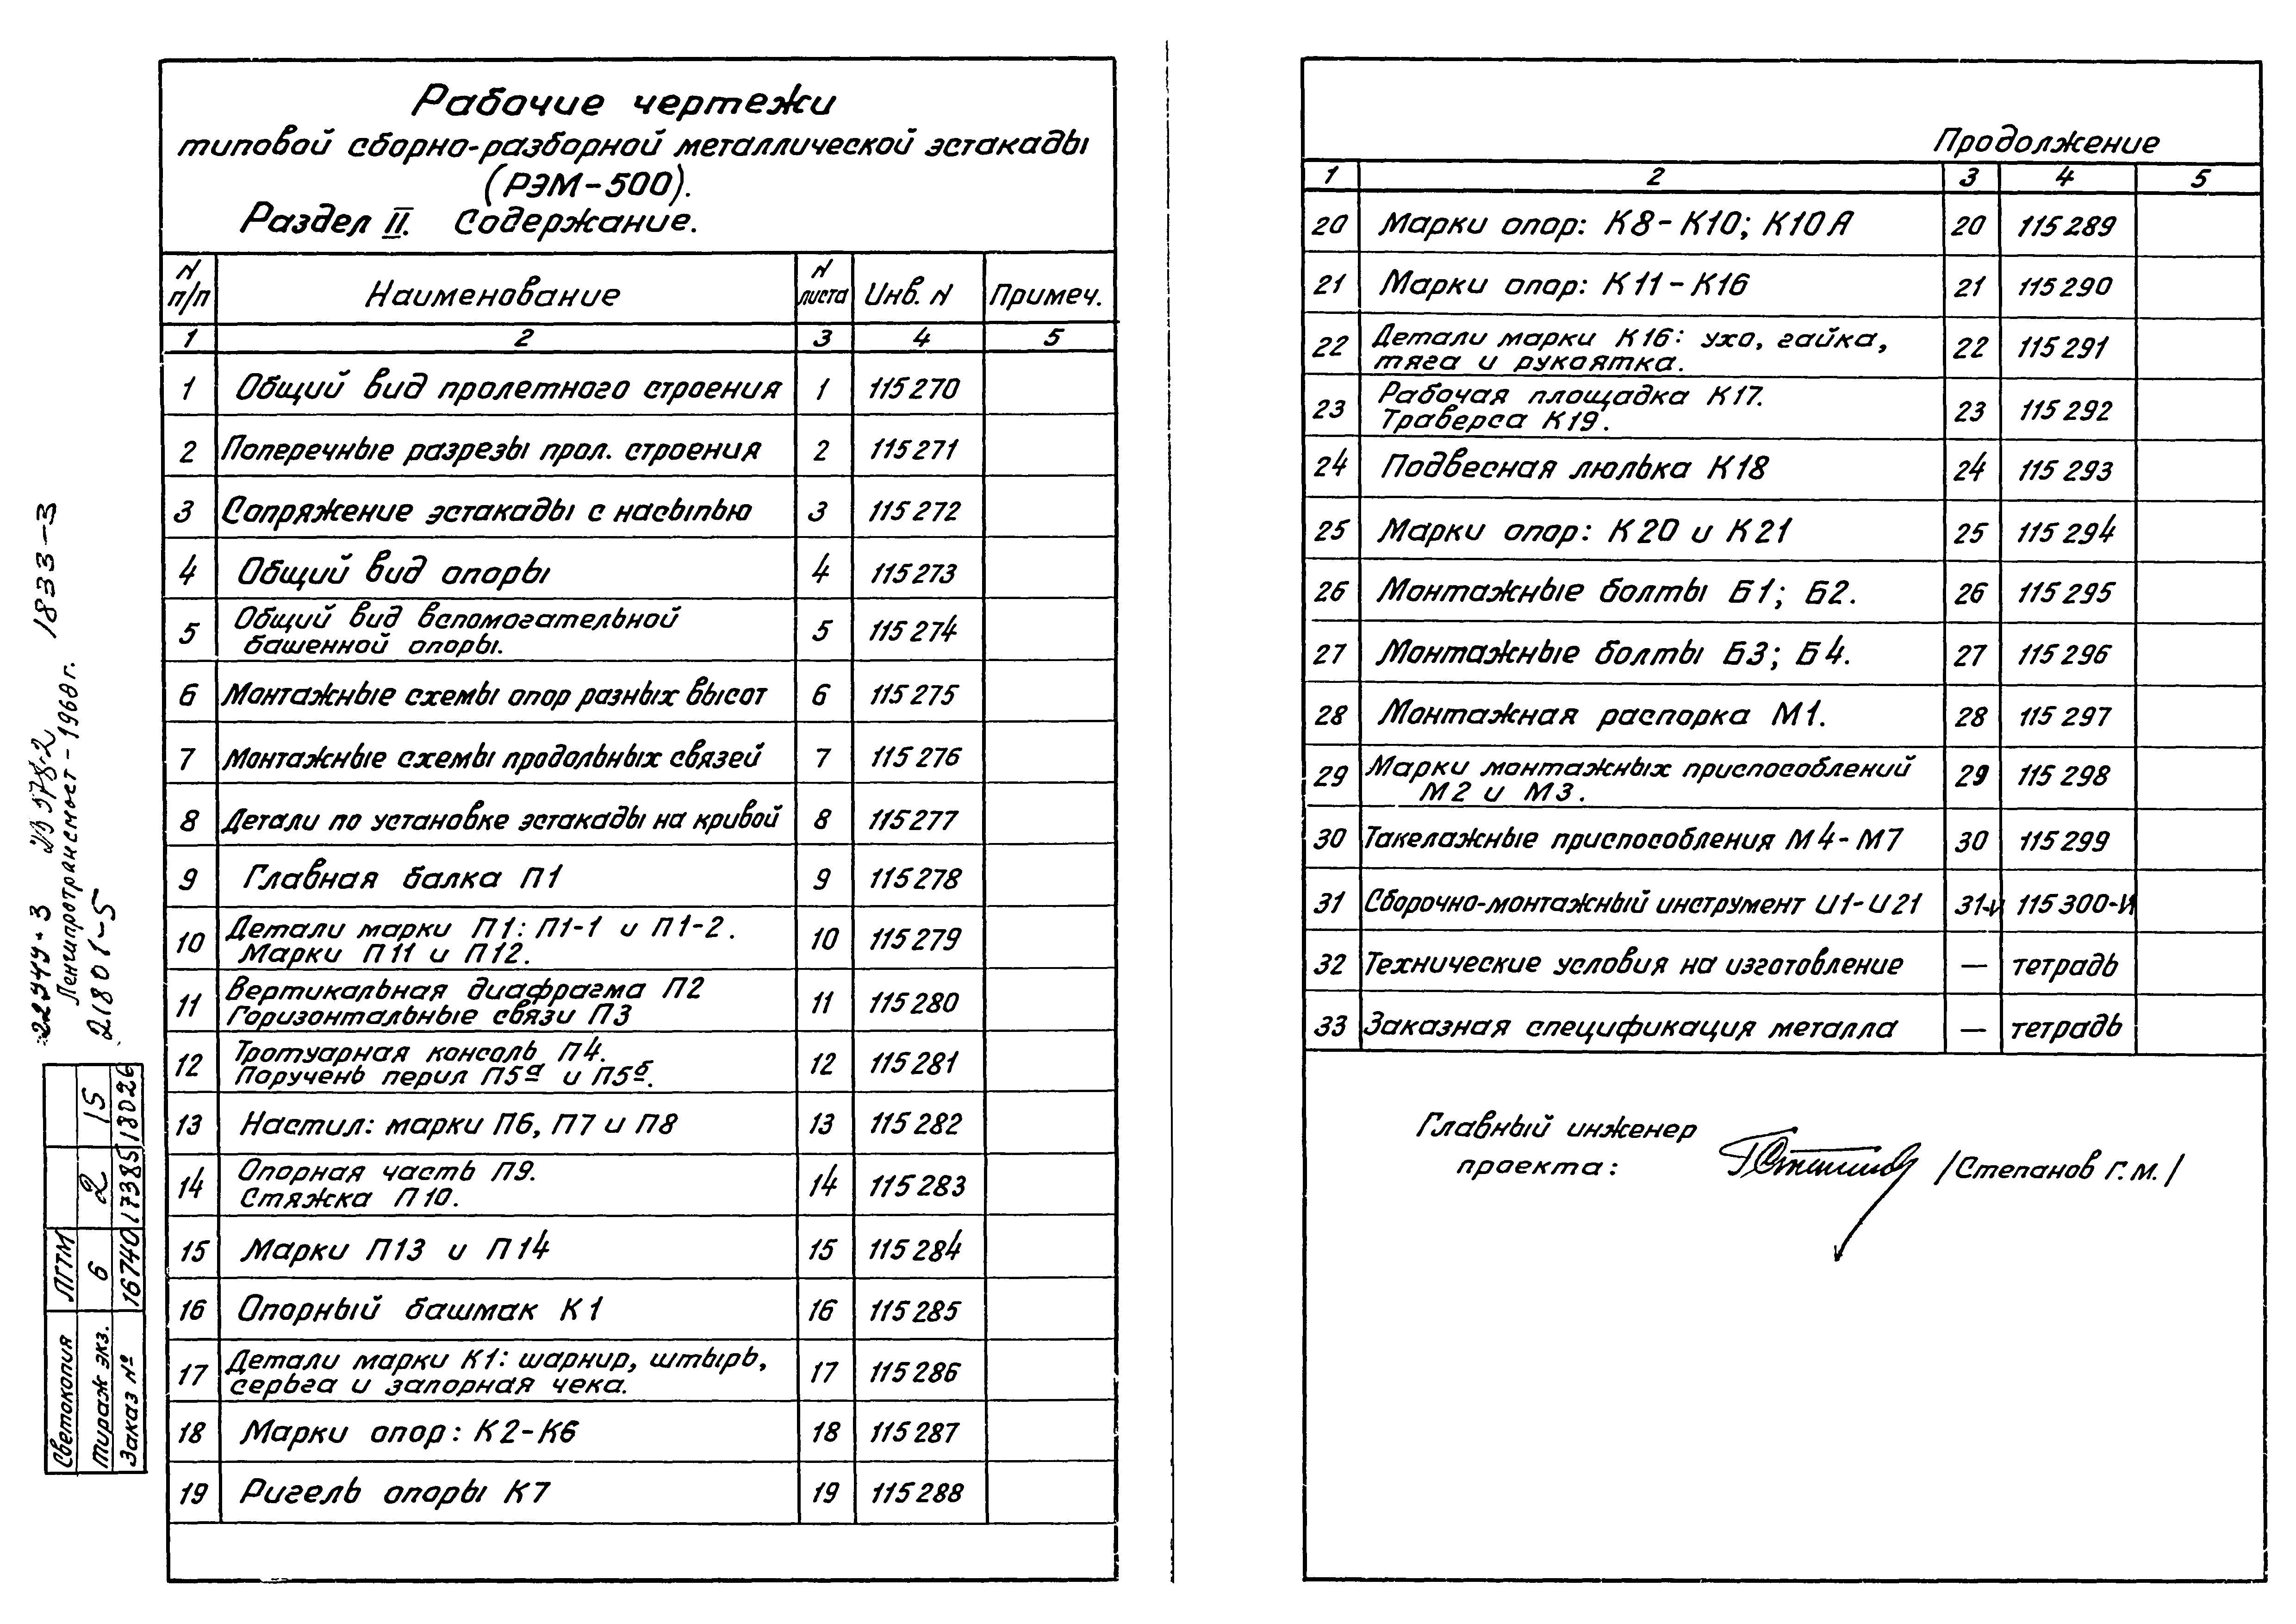 Рабочие чертежи
типовой сборно-разборной металлической эстакады
(РЭМ-500).
Раздел II. Содержание.
N п/п Наименование N листа Инв. N Примеч.
1 2 3 4 5
1 Общий вид пролетного строения 1 115270
2 Поперечные разрезы прол. строения 2 115271
3 Сопряжение эстакады с насыпью 3 115272
4 Общий вид опоры 4 115273
5 Общий вид вспомогательной 5 115274
башенной опоры.
6 Монтажные схемы опор разных высот 6 115275
7 Монтажные схемы продольных связей 7 115276
8 Детали по установке эстакады на кривой 8 115277
9 Главная балка П1 9 115278
10 Детали марки П1: П1-1 и П1-2. 10 115279
Марки П11 и П12.
11 Вертикальная диафрагма П2 11 115280
Горизонтальные связи П3
12 Тротуарная консоль П4. 12 115281
Поручень перил П5а и П5б.
13 Настил: марки П6, П7 и П8 13 115282
14 Опорная часть П9. 14 115283
Стяжка П10.
15 Марки П13 и П14 15 115284
16 Опорный башмак К1 16 115285
17 Детали марки К1: шарнир, штырь, 17 115286
серьга и запорная чека.
18 Марки опор: К2-К6 18 115287
19 Ригель опоры К7 19 115288
Продолжение
1 2 3 4 5
20 Марки опор: К8-К10; К10А 20 115289
21 Марки опор: К11-К16 21 115290
22 Детали марки К16: ухо, гайка, 22 115291
тяга и рукоятка.
23 Рабочая площадка К17. 23 115292
Траверса К19.
24 Подвесная люлька К18 24 115293
25 Марки опор: К20 и К21 25 115294
26 Монтажные болты Б1; Б2. 26 115295
27 Монтажные болты Б3; Б4. 27 115296
28 Монтажная распорка М1. 28 115297
29 Марки монтажных приспособлений 29 115298
М2 и М3.
30 Такелажные приспособления М4-М7 30 115299
31 Сборочно-монтажный инструмент И1-И21 31-И 115300-И
32 Технические условия на изготовление — тетрадь
33 Заказная спецификация металла — тетрадь
Главный инженер
проекта: /Степанов Г.М./
1833-3
Ленгипротрансмост-1968 г.
21801-5
Светокопия ЛГТМ
тираж экз. 6 2 15
Заказ № 16740 17385 18026